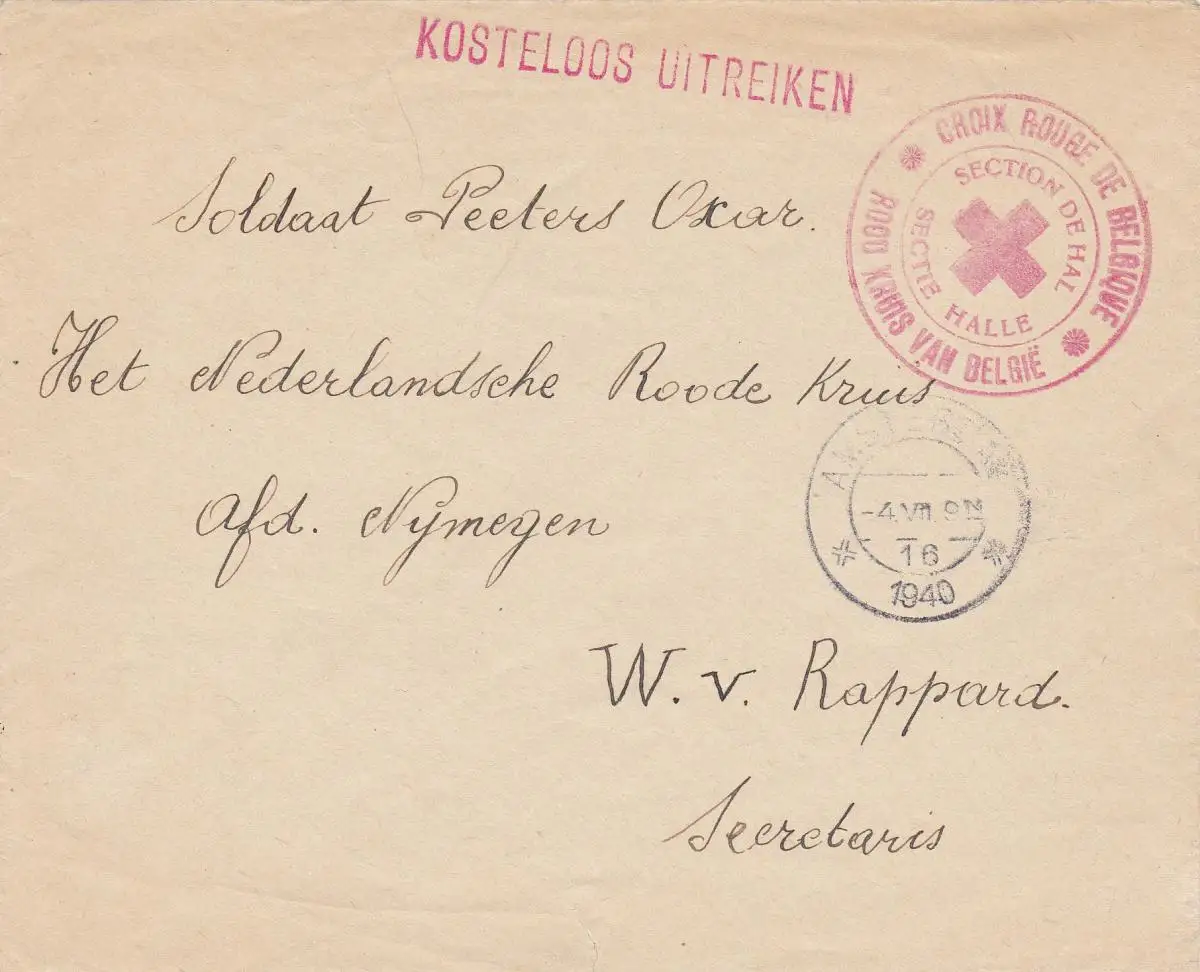 KOSTELOOS UITREIKEN
CROIX ROUGE DE BELGIQUE
ROOD KRUIS VAN BELGIË
SECTION DE HAL
SECTIE HALLE
Soldaat Peeters Oxar.
Het Nederlandsche Roode Kruis
Afd. Nymegen
-4.VII. 9 N
16
1940
W. v. Rappard.
Secretaris